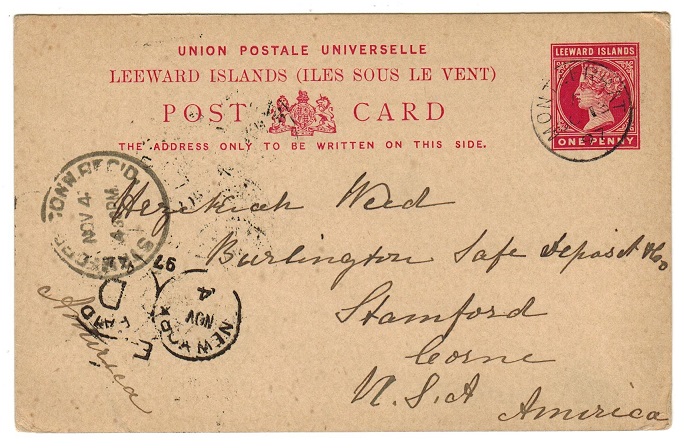 UNION POSTALE UNIVERSELLE
LEEWARD ISLANDS (ILES SOUS LE VENT)
POST CARD
THE ADDRESS ONLY TO BE WRITTEN ON THIS SIDE.
LEEWARD ISLANDS
ONE PENNY
STAMFORD CONN. REC'D
NOV 4
97
NEW YORK
NOV
4
PAID
D
Hezekiah Weed
Burlington Safe Deposit & Co
Stamford
Conne
U.S.A America
America